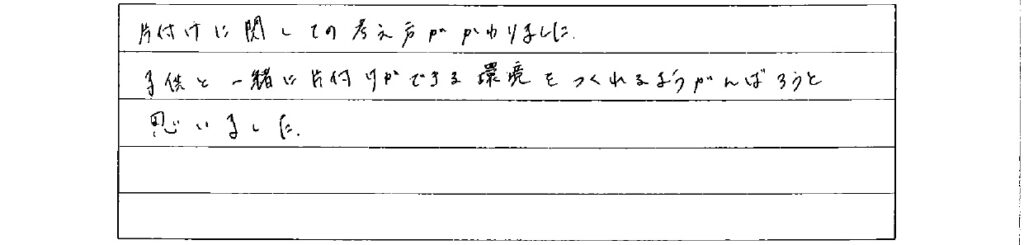 片付けに関しての考え方がかわりました.
子供と一緒に片付けができる環境をつくれるようがんばろうと
思いました.